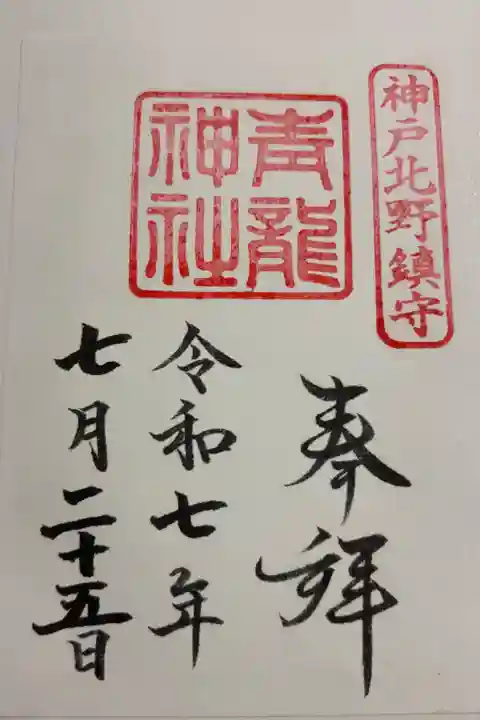 神戸北野鎮守
奉拜
青龍
神社
令和七年
七月二十五日